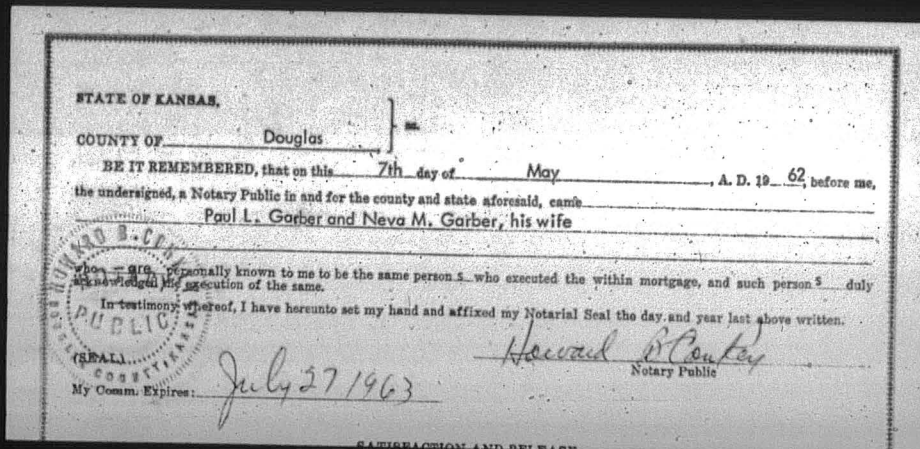 STATE OF KANSAS,
ss.
COUNTY OF Douglas
BE IT REMEMBERED, that on this 7th day of May, A. D. 19 62, before me,
the undersigned, a Notary Public in and for the county and state aforesaid, came
Paul L. Garber and Neva M. Garber, his wife
who are personally known to me to be the same person s who executed the within mortgage, and such person s duly
acknowledged the execution of the same.
In testimony whereof, I have hereunto set my hand and affixed my Notarial Seal the day and year last above written.
HOWARD B. CONKEY
PUBLIC
COUNTY, KANSAS
(SEAL)
Howard B Conkey
Notary Public
My Comm. Expires: July 27 1963
SATISFACTION AND RELEASE